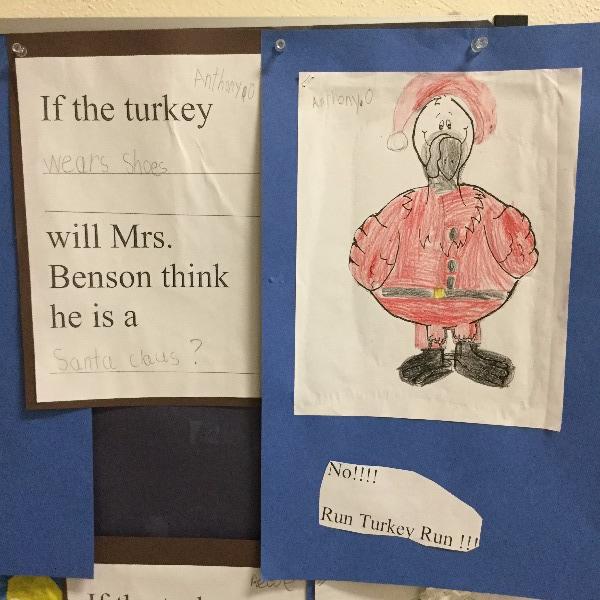 Anthony.O
If the turkey
wears shoes
will Mrs.
Benson think
he is a
Santa claus?
Anthony.O
No!!!!
Run Turkey Run !!!